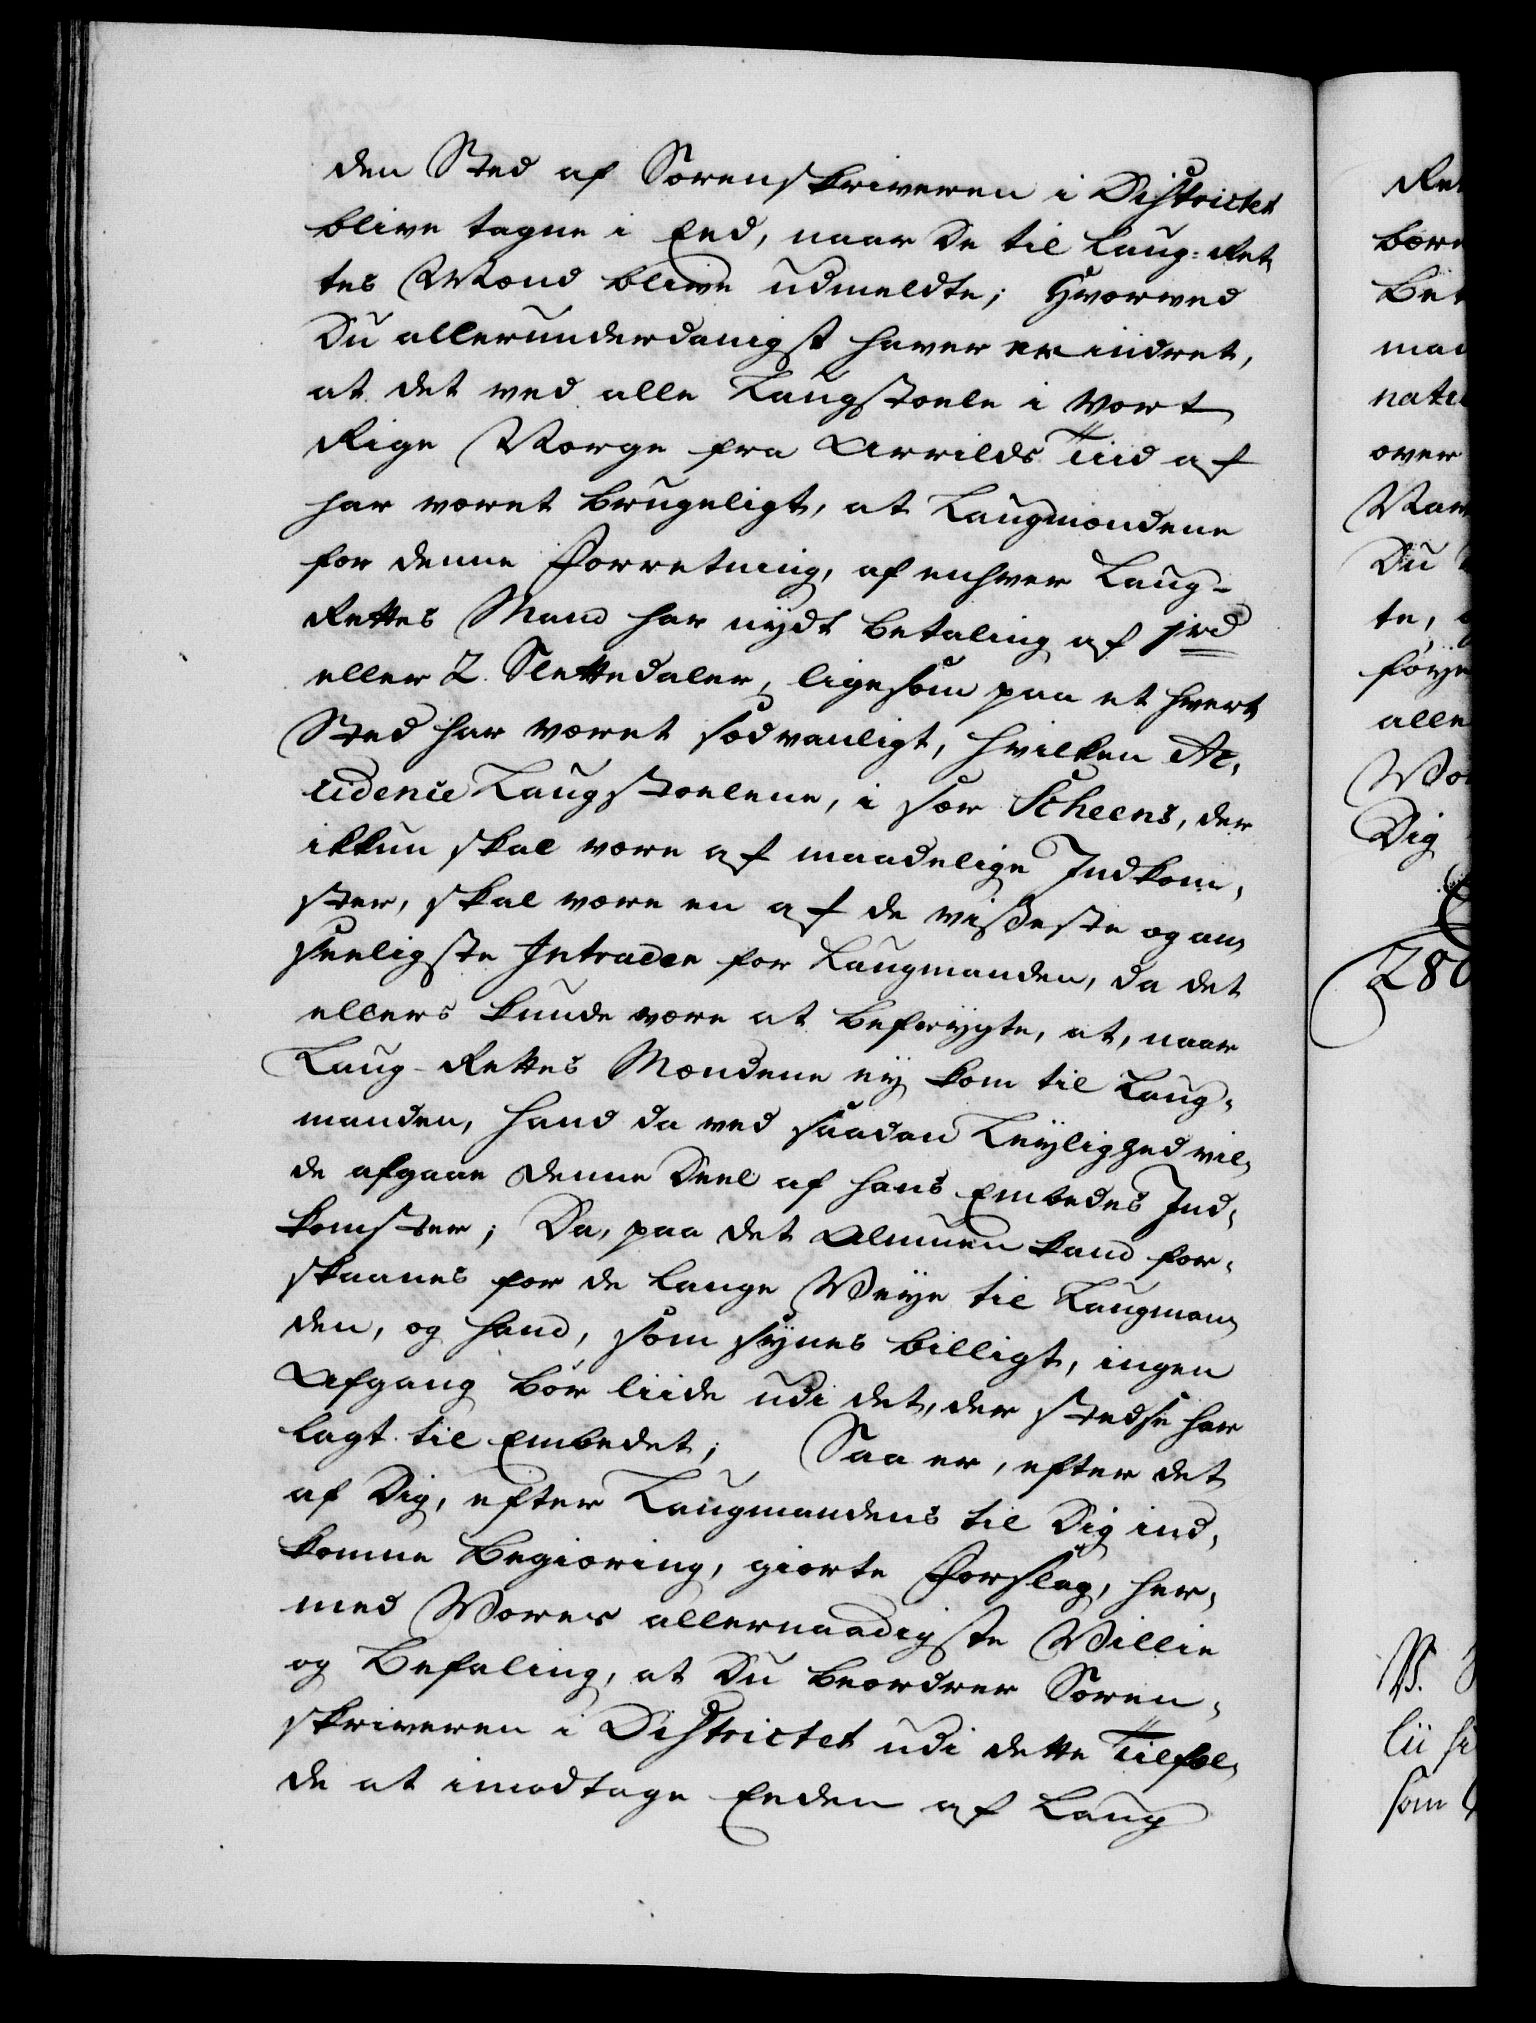 den Sted af Sorenskriveren i Districtet
blive tagne i Eed, naar De til Laug-Ret,
tes Mænd blive udmeldte; Hvorved
Du allerunderdanigst haver erindret,
at det ved alle Laugstoele i Vort
Rige Norge fra Arrilds Tiid af
har været brugeligt, at Laugmændene
for denne Forretning, af enhver Laug-
Rettes Mand har nydt betaling af 1 rd
eller 2 Slettedaler, ligesom paa et hvert
Sted har været sædvanligt, hvilken Ac,
cidence Laugstoelene, i sær Scheens, der
ikkun skal være af maadelige Indkom,
ster, skal være en af de visseste og an,
seeligste Intrader for Laugmanden, da det
ellers kunde være at befrygte, at, naar
Laug-Rettes Mændene ey kom til Laug,
manden, Hand da ved saadan Leylighed vil,
de afgaae denne Deel af hans Embedes Ind,
komster; Da, paa det Almuen kand for,
skaanes for de lange Veye til Laugman,
den, og Hand, som synes billigt, ingen
Afgang bør liide udi det, der stedse har
lagt til Embedet; Saa er, efter det
af Dig, efter Laugmandens til Dig ind,
komne Begiæring, giorte Forslag, her,
med Vores allernaadigste Villie
og Befaling, at Du beordrer Soren,
skriveren i Districtet udi dette Tilfæl,
de at imodtage Eeden af Laug
280